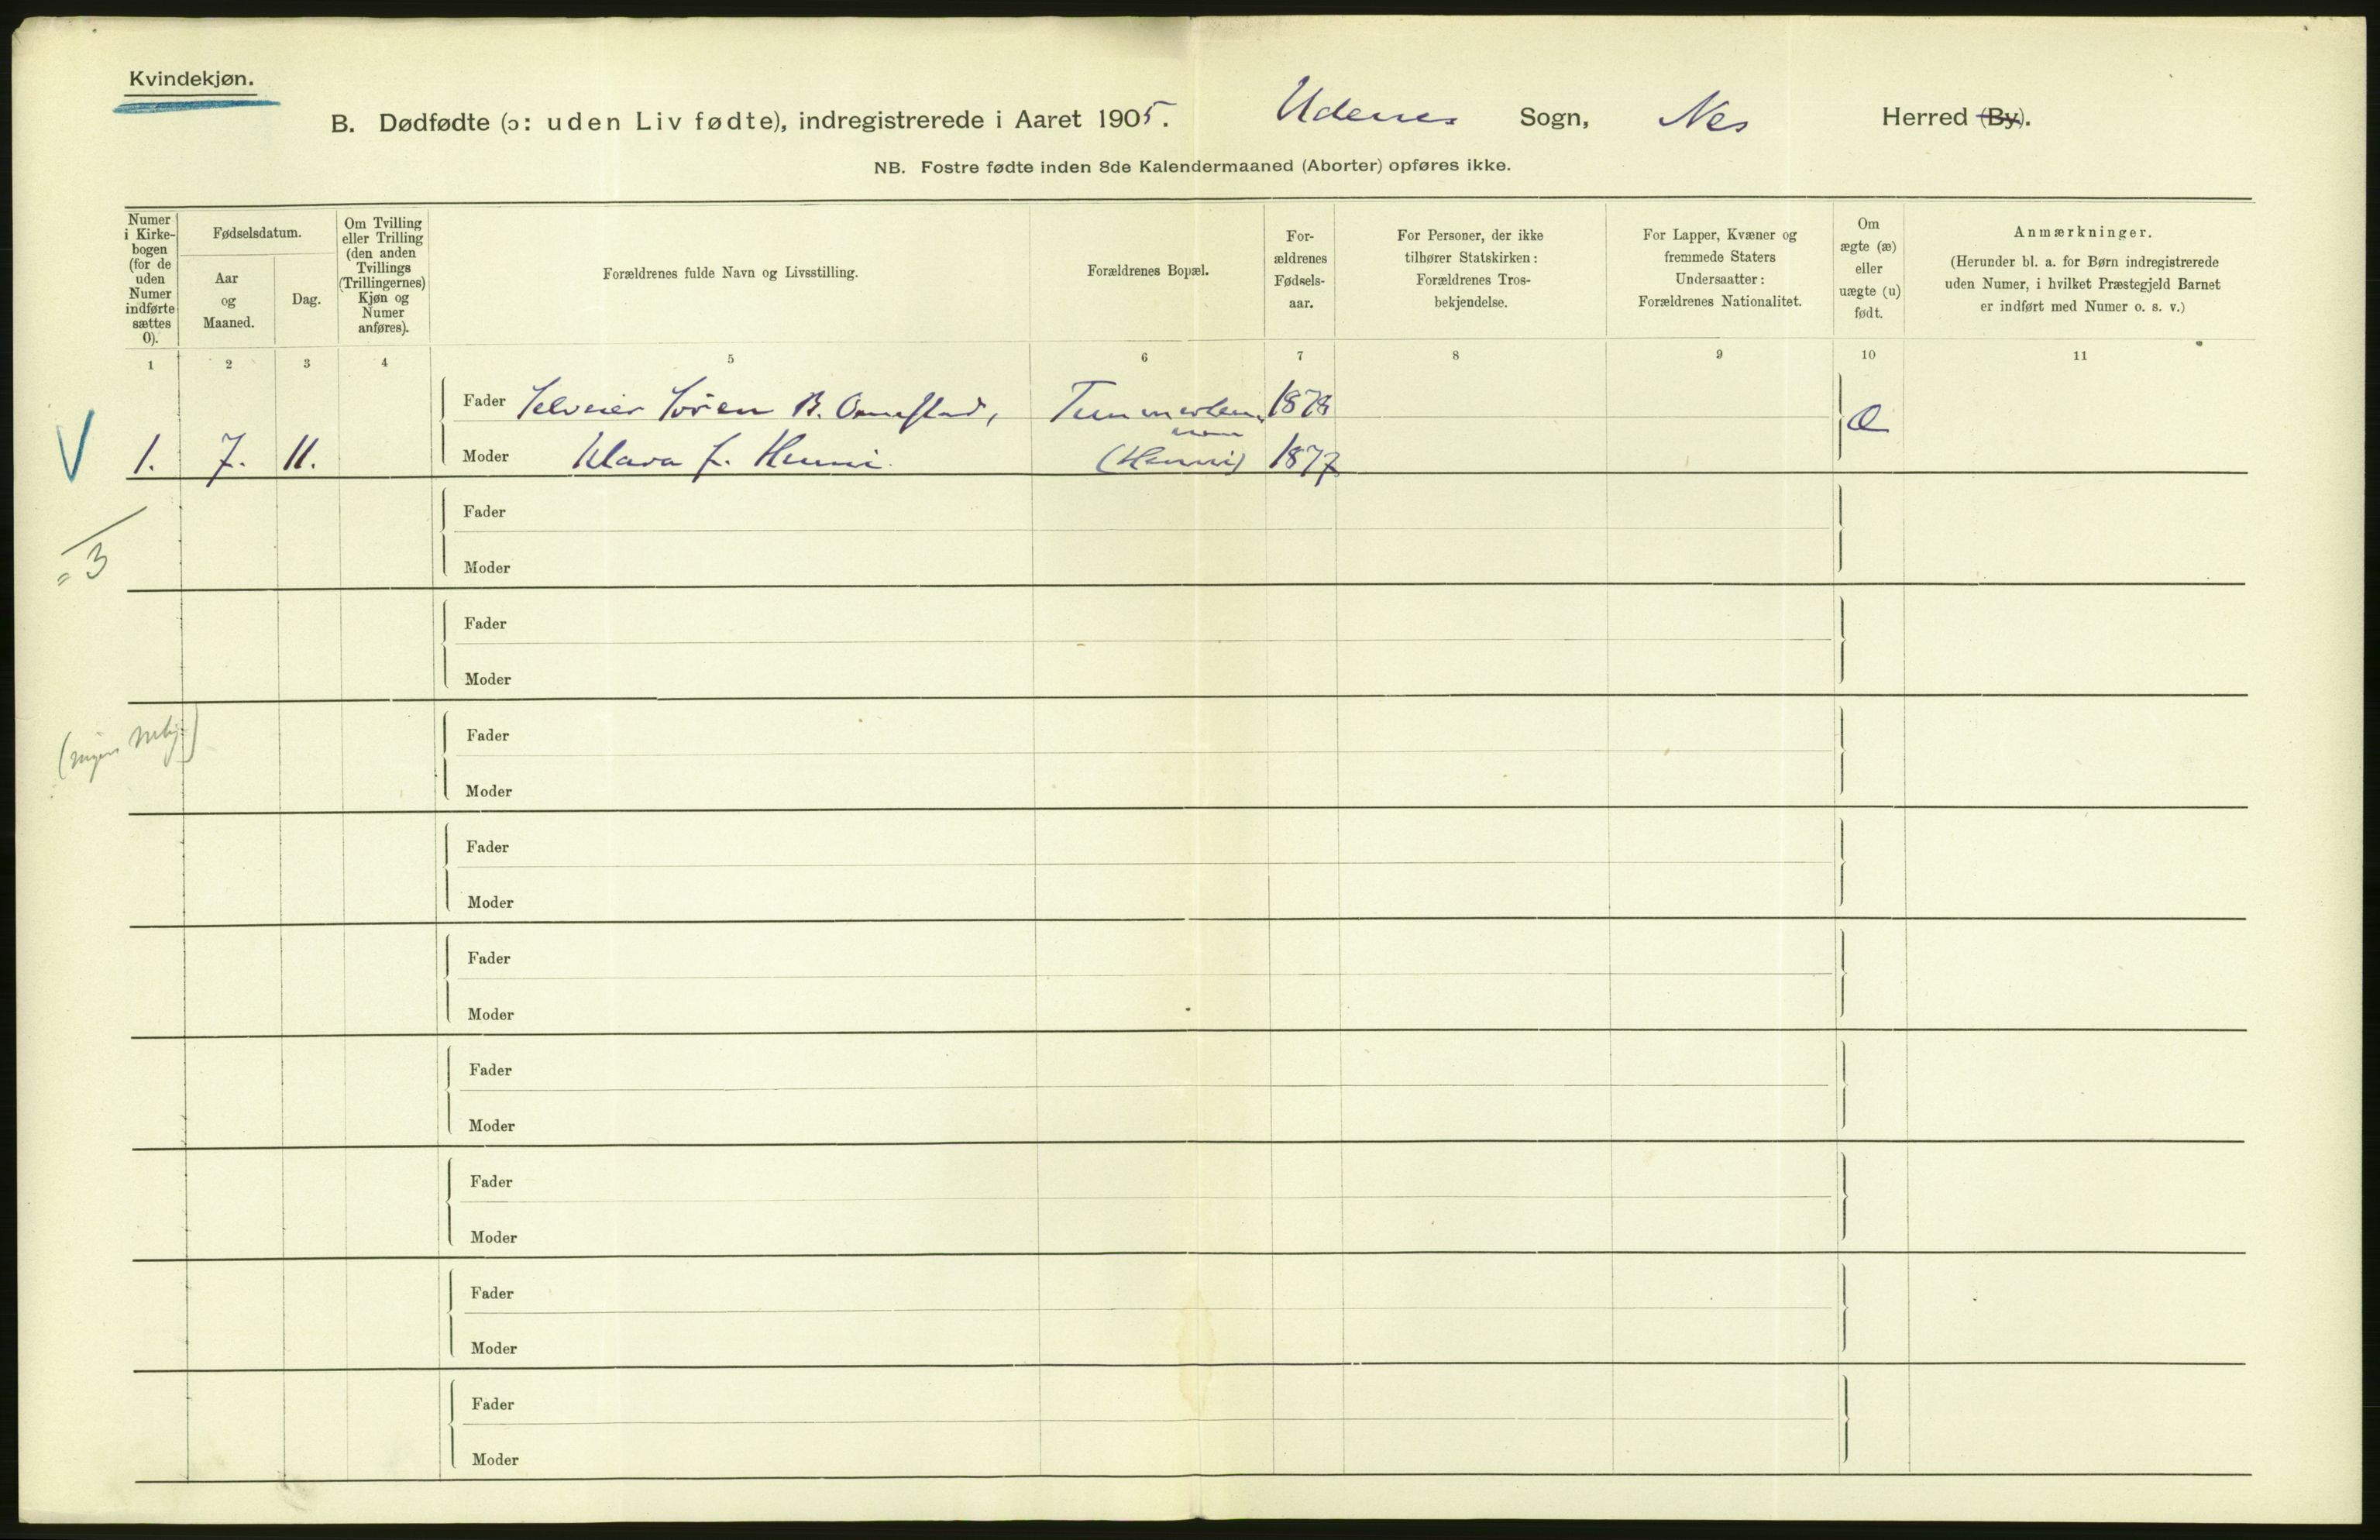 Kvindekjøn.
B. Dødfødte (ɔ: uden Liv fødte), indregistrerede i Aaret 1905. Udenes Sogn, Nes Herred (By).
NB. Fostre fødte inden 8de Kalendermaaned (Aborter) opføres ikke.
Numer i Kirke-bogen (for de uden Numer indførte sættes 0).
Fødselsdatum.
Aar og Maaned.
Dag.
Om Tvilling eller Trilling (den anden Tvillings (Trillingernes) Kjøn og Numer anføres).
Forældrenes fulde Navn og Livsstilling.
Forældrenes Bopæl.
For-ældrenes Fødsels-aar.
For Personer, der ikke tilhører Statskirken: Forældrenes Tros-bekjendelse.
For Lapper, Kvæner og fremmede Staters Undersaatter: Forældrenes Nationalitet.
Om ægte (æ) eller uægte (u) født.
Anmærkninger.
(Herunder bl. a. for Børn indregistrerede uden Numer, i hvilket Præstegjeld Barnet er indført med Numer o. s. v.)
1 2 3 4 5 6 7 8 9 10 11
Fader Selveier Søren B. 1878
V 1. 7. 11. Moder Klara 1877 Æ
Fader
= 3
Moder
Fader
Moder
Fader
Moder
Fader
Moder
Fader
Moder
Fader
Moder
Fader
Moder
Fader
Moder
Fader
Moder